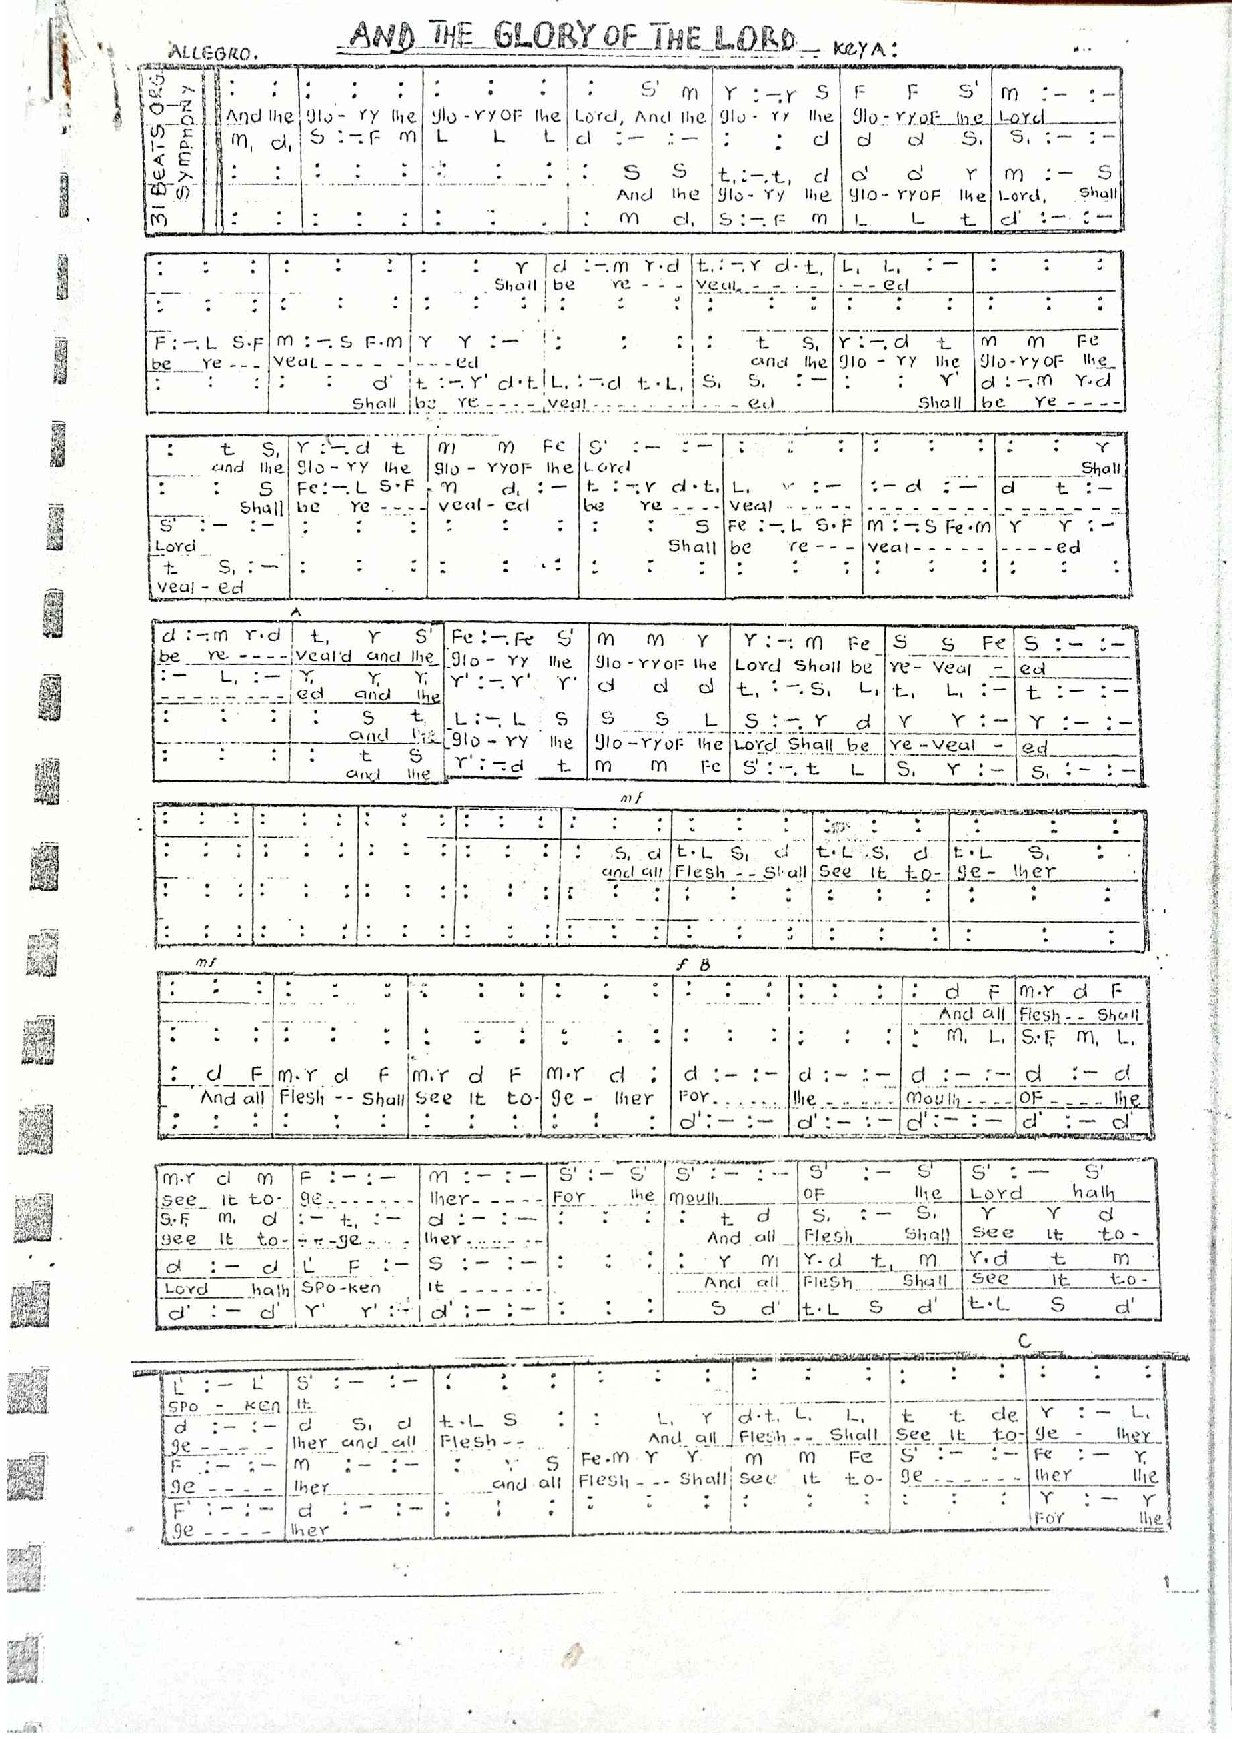 AND THE GLORY OF THE LORD KEY A:
ALLEGRO.
31 BEATS ORG SYMPHONY
: : | : : : | : : : | : S' m | r :-.r S | F F S' | m :- :-
And the | glo- ry the | glo-ry OF the | Lord, And the | glo- ry the | glo-ry OF the | Lord
m, d, | S :-.F m | L L L | d :- :- | : : d | d d S, | S, :- :-
: : | : : : | : : : | : S S | t, :-.t, d | d' d' r | m :- S
And the | glo- ry the | glo-ry OF the | Lord, Shall
: : | : : : | : : . | : m d, | S :-.F m | L L t | d' :- :-
: : : | : : : | : : r | d :-.m r.d | t, :-.r d.t, | L, L, :- | : : :
Shall | be re --- | veal - - - - | --- ed
: : : | : : : | : : : | : : : | : : : | : : : | : : :
F :-.L S.F | m :-.S F.m | r r :- | : : : | : t S, | r :-.d t | m m Fe
be re --- | veal - - - - | - - - - ed | and the | glo - ry the | glo-ry OF the
: : : | : : d' | t :-.r' d.t | L, :-.d t.L, | S, S, :- | : : r' | d :-.m r.d
Shall | be re ---- | veal - - - - | - - - - ed | Shall | be re ----
: t S, | r :-.d t | m m Fe | S' :- :- | : : : | : : : | : : r
and the | glo-ry the | glo-ry OF the | Lord | Shall
: : S | Fe :-.L S.F | m d, :- | t :-.r d.t, | L, :- | :- d :- | d t :-
Shall | be re ---- | veal-ed | be re ---- | veal - - - -
S' :- :- | : : : | : : : | : : S | Fe :-.L S.F | m :-.S Fe.m | r r :-
Lord | Shall | be re --- | veal- - - - - | - - - - ed
t S, :- | : : : | : : : | : : : | : : : | : : : | : : :
veal - ed
A
d :-.m r.d | t, r S' | Fe :-.Fe S' | m m r | r :-: m Fe | S S Fe | S :- :-
be re ---- | veal'd and the | glo - ry the | glo-ry OF the | Lord Shall be | re-veal - | ed
:- L, :- | r, r, r, | r' :-.r' r' | d d d | t, :-.S, L, | t, L, :- | t :- :-
- - - - - - - | ed and the
: : : | : S t | L :-.L S | S S L | S :-.r d | r r :- | r :- :-
and the | glo-ry the | glo-ry OF the | Lord Shall be | re-veal - | ed
: : : | : t S | r' :-.d t | m m Fe | S' :-.t L | S, r :- | S, :- :-
and the
mf
: : : | : : : | : : : | : : : | : : : | : : : | : : : | : : :
: : : | : : : | : : : | : : : | : S, d | t.L S, d | t.L S, d | t.L S, :
and all | Flesh -- Shall | See it to- | ge- ther
: : : | : : : | : : : | : : : | : : : | : : : | : : : | : : :
: : : | : : : | : : : | : : : | : : : | : : : | : : : | : : :
mf f B
: : : | : : : | : : : | : : : | : : : | : : : | : d F | m.r d F
And all | Flesh -- Shall
: : : | : : : | : : : | : : : | : : : | : : : | : m, L, | S.F, m, L,
: d F | m.r d F | m.r d F | m.r d : | d :- :- | d :- :- | d :- :- | d :- d
And all | Flesh -- Shall | See it to- | ge - ther | For | the | mouth ---- | OF ---- the
: : : | : : : | : : : | : : : | d' :- :- | d' :- :- | d' :- :- | d' :- d'
m.r d m | F :- :- | m :- :- | S' :- S' | S' :- :- | S' :- S' | S' :- S'
see it to- | ge - - - - | ther - - - - | For the | mouth | OF the | Lord hath
S.F m, d | :- t, :- | d :- :- | : : : | : t d | S, :- S, | r r d
see it to- | ---ge --- | ther | And all | Flesh Shall | See it to-
d :- d | L F :- | S :- :- | : : : | : r m | r.d t, m | r.d t m
Lord hath | SPO-ken | it | And all | Flesh Shall | See it to-
d' :- d' | r' r' :- | d' :- :- | : : : | S d' | t.L S d' | t.L S d'
C
L' :- L' | S' :- :- | : : : | : : : | : : : | : : : | : : :
SPO - KEN | it
d :- :- | d S, d | t.L S : | : L, r | d.t, L, L, | t t de | r :- L,
ge - - - - | ther and all | Flesh -- | And all | Flesh -- Shall | See it to- | ge - ther
F :- :- | m :- :- | : r S | Fe.m r r | m m Fe | S' :- :- | Fe :- r,
ge - - - - | ther | and all | Flesh --- Shall | see it to- | ge - - - - | ther the
F' :- :- | d :- :- | : : : | : : : | : : : | : : : | r :- r
ge - - - - | ther | For the